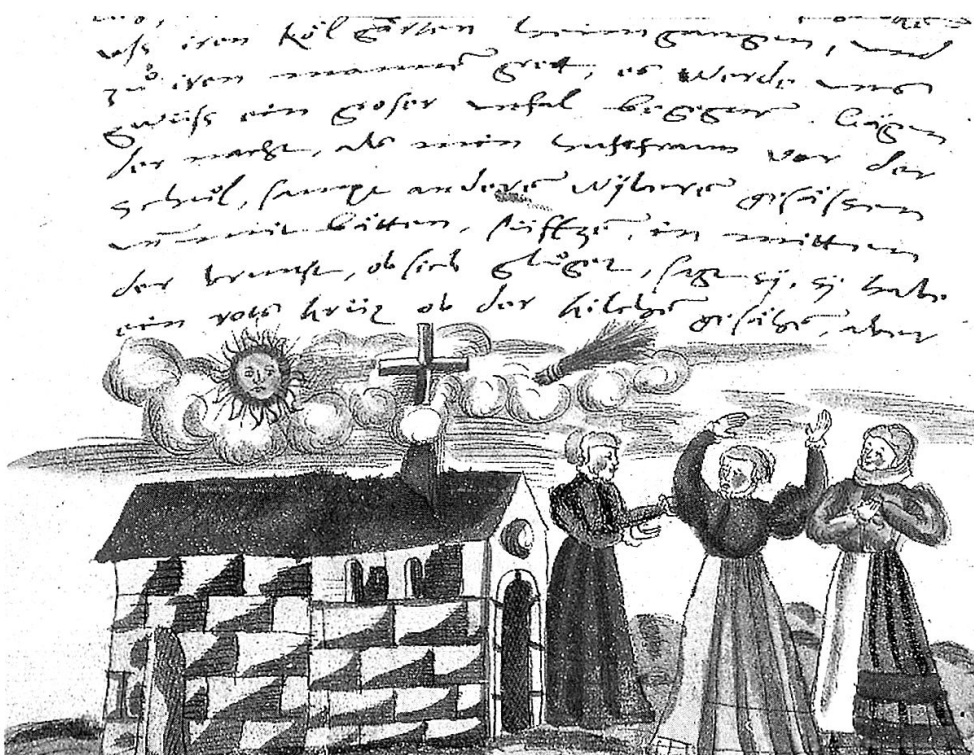 uſs iren Köl gärten heimgangen, und
zů iren mannen gret, es werde uns
gwüſs ein groſer unfal begegnen. Gägen
der nacht, als min huſsfrauw vor der
schůl, ſampt anderen Wyberen geſäſſen
unnd mit bätten, ſüffzen, in mitten
der brunſt, ob ſich gluget, ſagt sÿ, sÿ habe
ein rots krüz ob der kilchen geſähen, aber